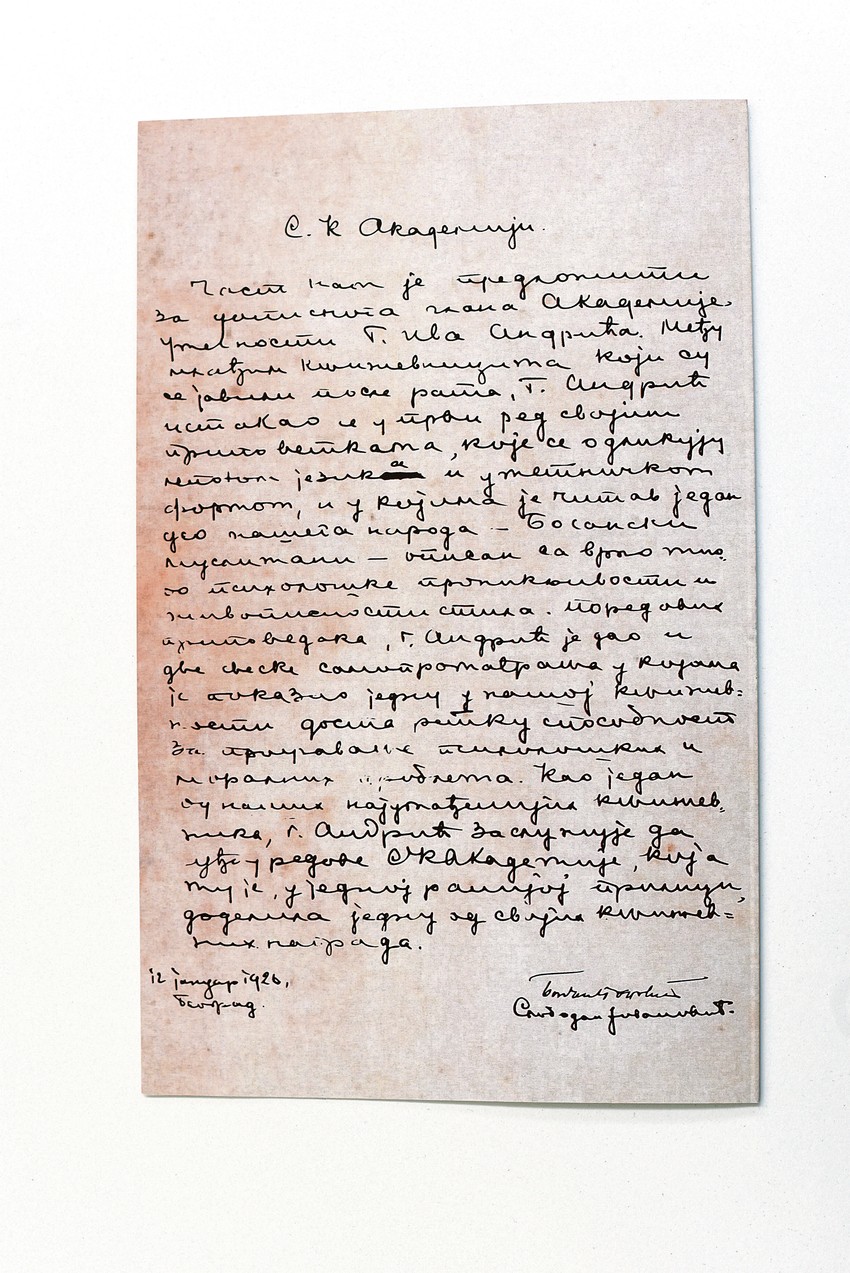 С. К Академији.
Част нам је предложити
за дописнога члана Академије
уметности Г. Ива Андрића. Међу
млађим књижевницима који су
се јавили после рата, Г. Андрић
истакао се у први ред својим
приповеткама, које се одликују
лепотом језика и уметничком
формом, и у којима је читав један
део нашега народа – Босански
муслимани – описан са врло мно
го психолошке проникљивости и
живописности стила. Поред ових
приповедака, г. Андрић је дао и
две свеске самопроматрања у којима
је показао једну у нашој књижев=
ности доста ретку способност
за проучавање психолошких и
моралних проблема. Као један
од наших најумађенијих књижев=
ника, г. Андрић заслужује да
уђе у редове СКАкадемије, која
му је, у једној ранијој прилици,
доделила једну од својих књижев=
них награда.
12 јануар 1926,
Београд.
Слободан Јовановић.